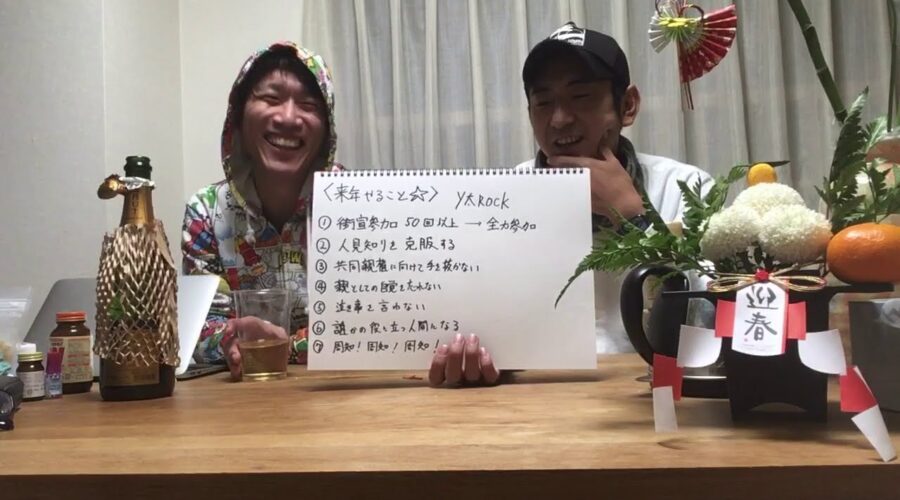 〈来年やること☆〉 Y太ROCK
① 街宣参加 50回以上 → 全力参加
② 人見知りを克服する
③ 共同親権に向けて手を抜かない
④ 親としての自覚を忘れない
⑤ 泣き事を言わない
⑥ 誰かの役に立つ人間になる
⑦ 周知！周知！周知！
迎春